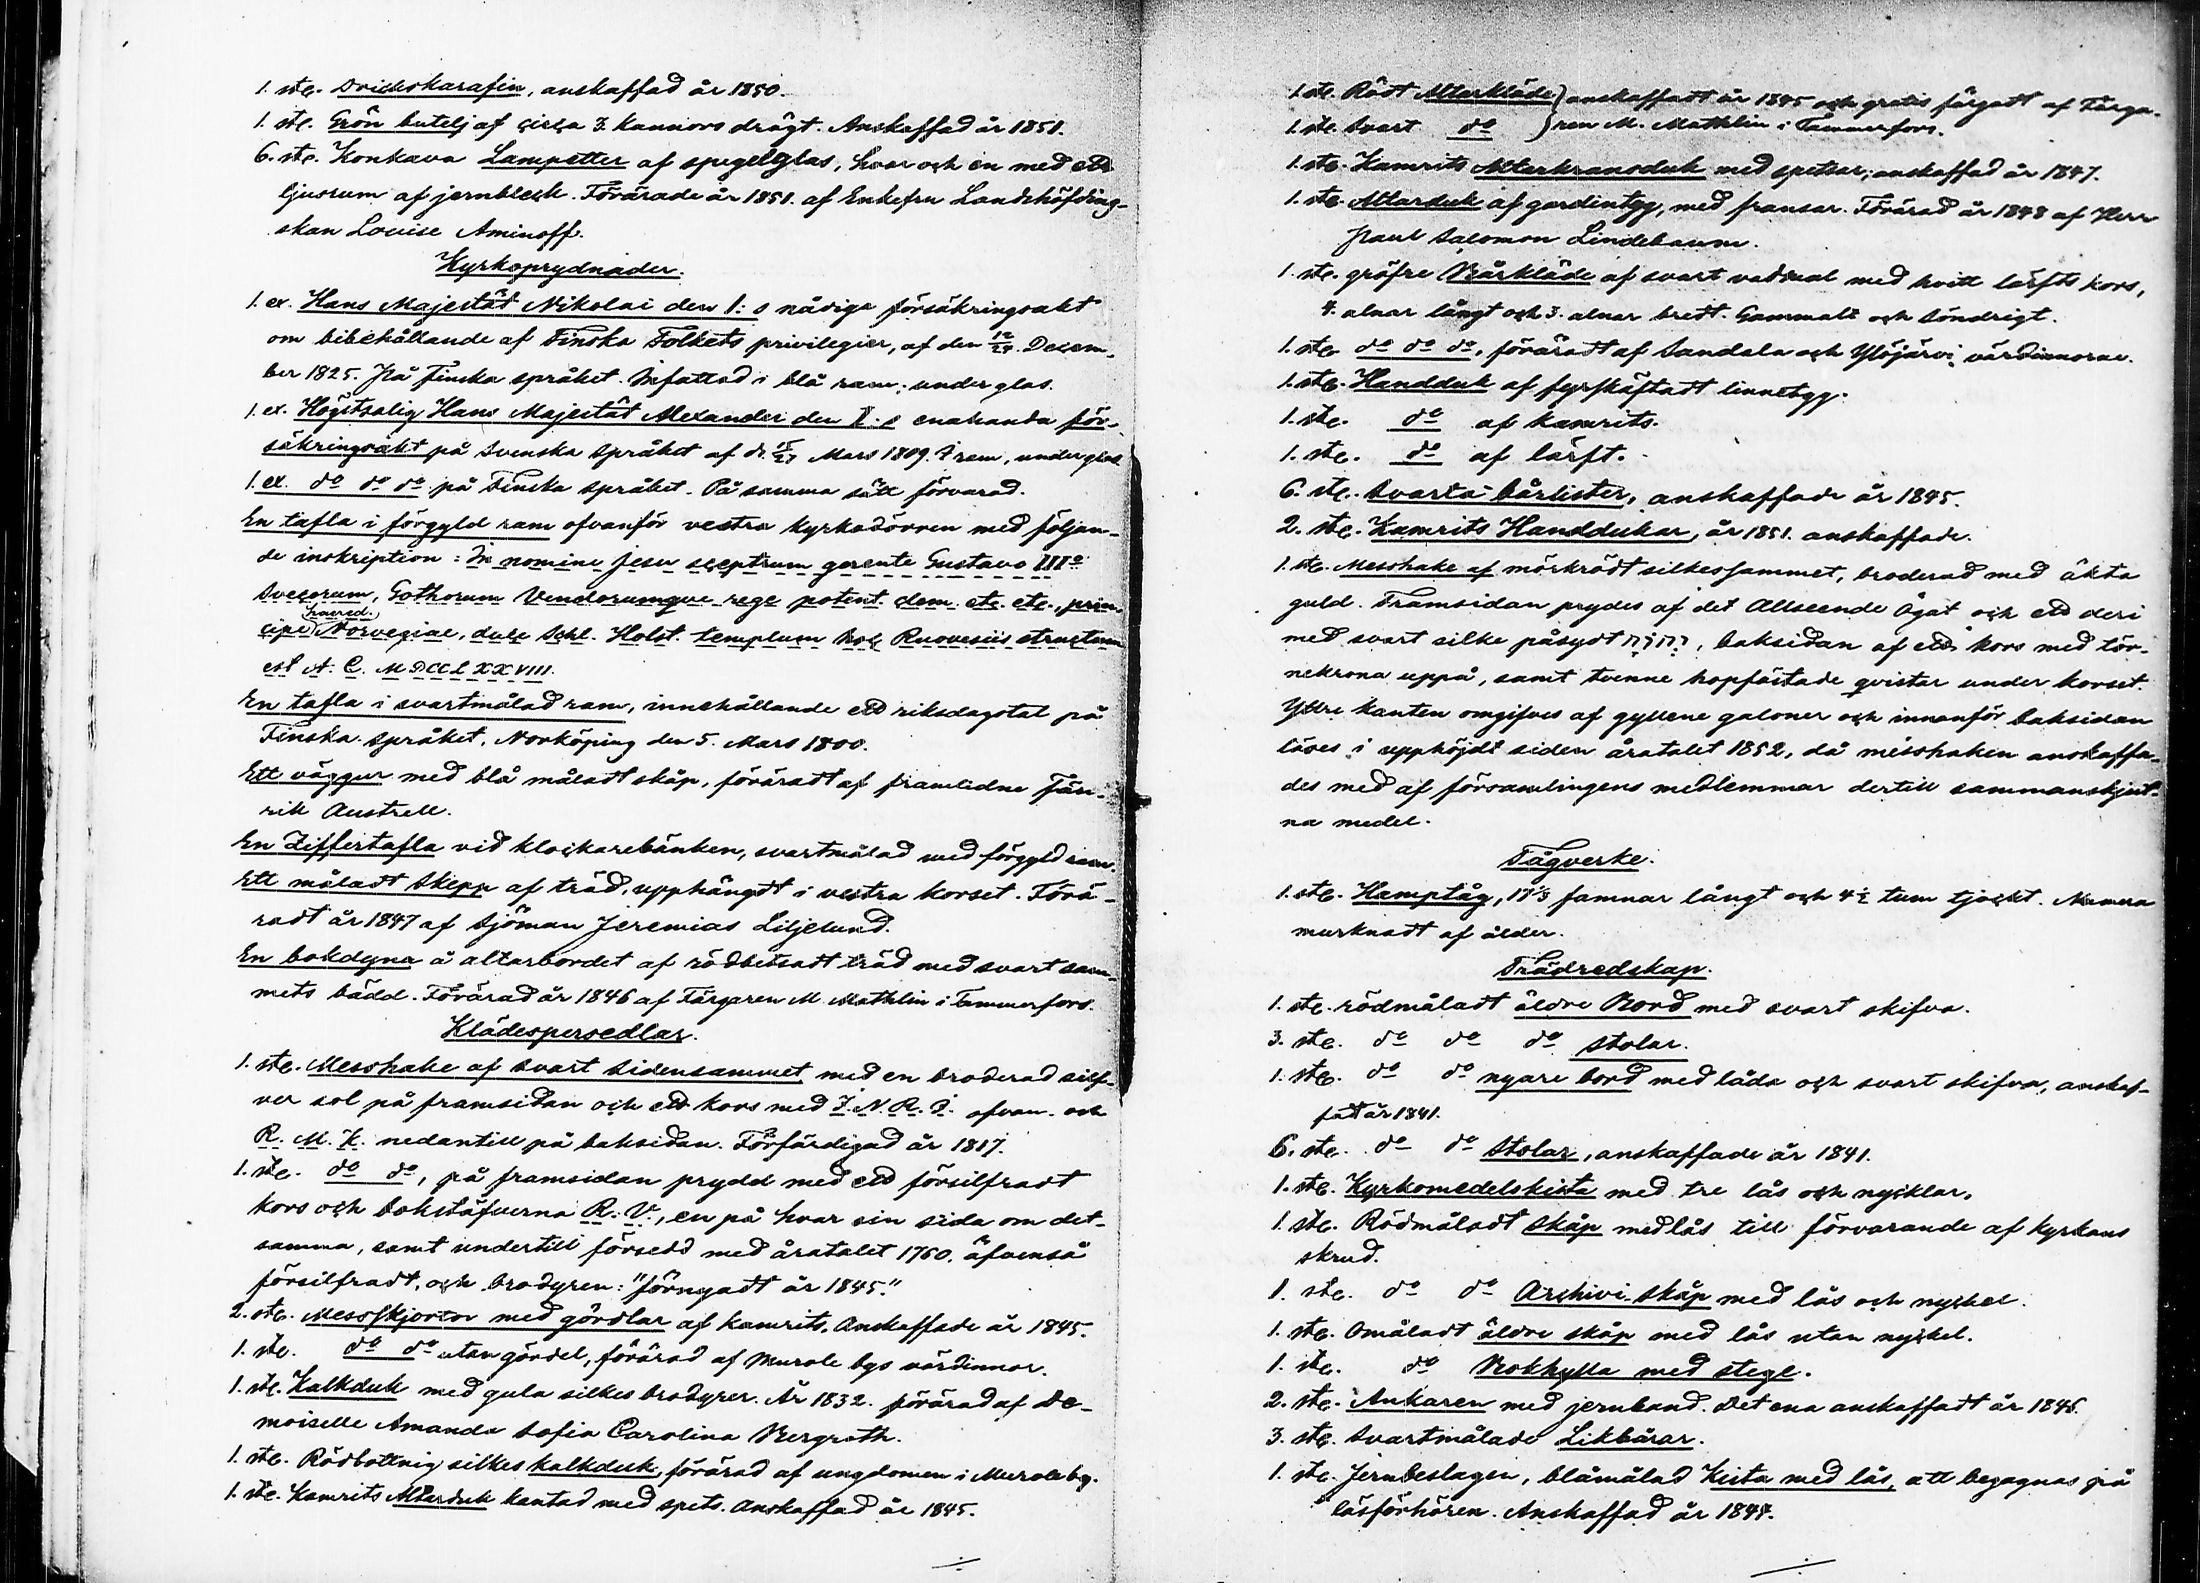 1. st. Drickskarafin, anskaffad år 1850.
1. st. Grön butelj af circa 3. kannors drägt. Anskaffad år 1851.
6. st. Konkava Lampetter af spegelglas, hvar och en med ett
ljusrum af jernbleck. Förärade år 1851. af Enkefru Landshöfding-
skan Louise Aminoff.
Kyrkoprydnader.
1. ex. Hans Majestät Nikolai den I: s nådiga försäkringsakt
om bibehållande af Finska Folkets privilegier, af den 12/24. Decem-
ber 1825. På finska språket. Infattad i blå ram; under glas.
1. ex. Högstsalig Hans Majestät Alexander den I: s enahanda för-
säkringsakt på Svenska språket af d. 15/27 Mars 1809. I ram, under glas.
1. ex. do do do på Finska språket. På samma sätt förvarad.
En tafla i förgyld ram ofvanför vestra kyrkodörren med följan-
de inskription: In nomine Jesu sceptrum gerente Gustavo IIIo
Svecorum, Gothorum Vendorumqve rege potent. dem. etc. etc., prin-
haered.
cipe Norvegiae, duce Schl. Holst. templum hoc Ruovesiis structum
est A. C. MDCCLXXVIII.
En tafla i svartmålad ram, innehållande ett riksdagstal på
Finska språket, Norköping den 5. Mars 1800.
Ett väggur med blå måladt skåp, föräradt af framlidne Fän-
rik Austrell.
En Ziffertafla vid klockarebänken, svartmålad med förgyld ram.
Ett måladt Skepp af träd, upphängdt i vestra korset. Förä-
radt år 1847 af Sjöman Jeremias Liljelund.
En bokdyna å altarbordet af rödbetsadt träd med svart sam-
mets bädd. Förärad år 1846 af Färgaren M. Mathlin i Tammerfors.
Klädespersedlar.
1. st. Messhake af svart sidensammet med en broderad silf-
ver sol på framsidan och ett kors med I. N. R. I. ofvan- och
R. M. K. nedantill på baksidan. Förfärdigad år 1817.
1. st. do do, på framsidan prydd med ett försilfradt
kors och bokstäfverna R. V., en på hvar sin sida om det-
samma, samt undertill försedd med åratalet 1760. äfvenså
försilfradt, och brodyren: "förnyadt år 1845."
2. st. Messskjortor med gördlar af kamrits. Anskaffade år 1845.
1. st. do do utan gördel, förärad af Murole bys värdinnor.
1. st. Kalkduk med gula silkes brodyrer. År 1832. förärad af De-
moiselle Amanda Sofia Carolina Bergroth.
1. st. Rödbottnig silkes kalkduk förärad af ungdomen i Murole by.
1. st. Kamrits Altarduk kantad med spets. Anskaffad år 1845.
1. st. Rödt Altarkläde } anskaffadt år 1845 och gratis färgadt af Färga-
1. st. Svart do } ren M. Mathlin i Tammerfors.
1. st. Kamrits Altarkransduk med spetsar; anskaffad år 1847.
1. st. Altarduk af gardintyg, med fransar. Förärad år 1848 af Herr
Paul Salomon Lindebaum.
1. st. gröfre Bårkläde af svart vadmal med hvitt lärfts kors,
4. alnar långt och 3. alnar bredt. Gammalt och söndrigt.
1. st. do do do, förärad af Sandala och Ylöjärvi värdinnorne.
1. st. Handduk af fyrskäftadt linnetyg.
1. st. do af kamrits.
1. st. do af lärft.
6. st. Svarta bårlister, anskaffade år 1845.
2. st. Kamrits Handdukar, år 1851. anskaffade.
1. st. Messhake af mörkrödt silkessammet, broderad med äkta
guld. Framsidan prydes af det Allseende Ögat och ett deri
med svart silke påsydt יהוה, baksidan af ett kors med tör-
nekrona uppå, samt tvenne hopfästade qvistar under korset.
Yttre kanten omgifves af gyllene galoner och innanför baksidan
läses i upphöjdt siden åratalet 1852, då messhaken anskaffa-
des med af församlingens medlemmar dertill sammanskjut-
na medel.
Tågverke.
1. st. Hamptåg, 17 1/3 famnar långt och 4 1/2 tum tjockt. Numera
murknadt af ålder.
Trädredskap.
1. st. rödmåladt äldre Bord med svart skifva.
3. st. do do do stolar.
1. st. do do nyare bord med låda och svart skifva, anskaf-
fadt år 1841.
6. st. do do Stolar, anskaffade år 1841.
1. st. Kyrkomedelskista med tre lås och nycklar.
1. st. Rödmåladt skåp med lås till förvarande af kyrkans
skrud.
1. st. do do Archivi-skåp med lås och nyckel.
1. st. Omåladt äldre skåp med lås utan nyckel.
1. st. do Bokhylla med stege.
2. st. Ankaren med jernband. Det ena anskaffadt år 1845.
3. st. Svartmålade Likbårar.
1. st. Jernbeslagen, blåmålad Kista med lås, att begagnas på
läsförhören. Anskaffad år 1847.